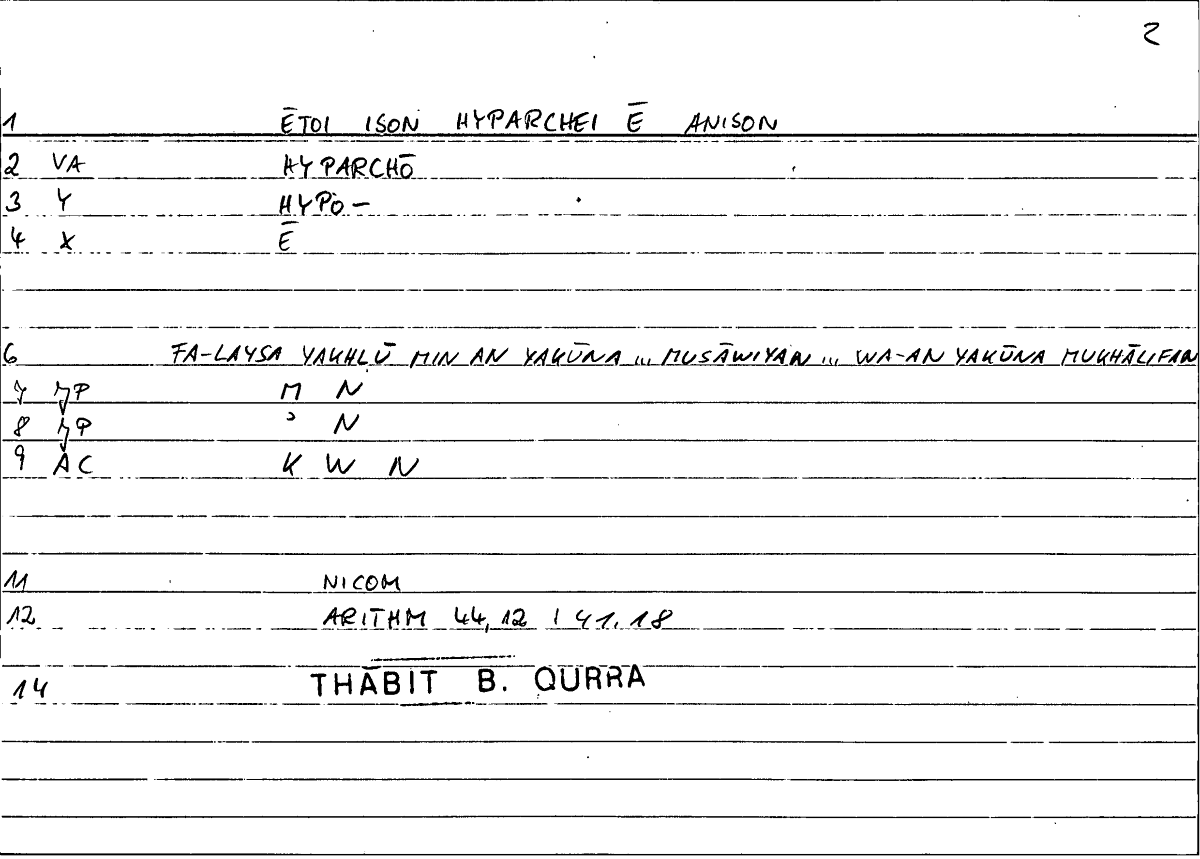 2
1 ĒTOI ISON HYPARCHEI Ē ANISON
2 VA HYPARCHŌ
3 Y HYPO–
4 X Ē
6 FA-LAYSA YAKHLŪ MIN AN YAKŪNA ... MUSĀWIYAN ... WA-AN YAKŪNA MUKHĀLIFAN
7 M N
8 ʾ N
9 AC K W N
11 NICOM
12 ARITHM 44,12 | 41.18
14 THĀBIT B. QURRA